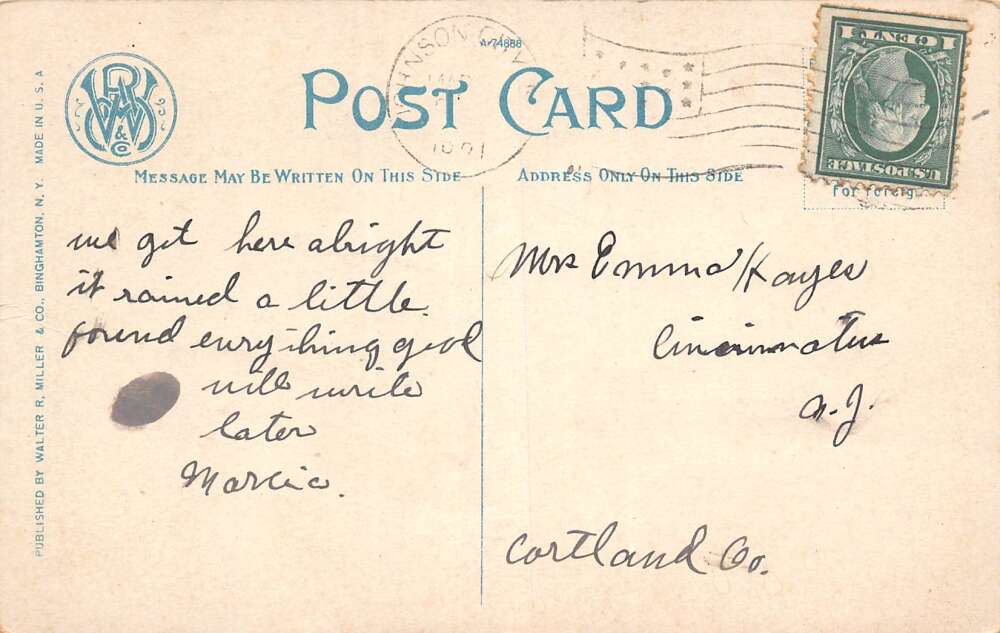 A-74888
POST CARD
JOHNSON CITY
W R M & Co
MESSAGE MAY BE WRITTEN ON THIS SIDE
ADDRESS ONLY ON THIS SIDE
1 CENT 1
U.S. POSTAGE
For foreig
we got here alright
it rained a little
found everything good
will write
later
Marcia.
Mrs Emma Hayes
Cincinnatus
N.Y.
Cortland Co.
PUBLISHED BY WALTER R. MILLER & CO., BINGHAMTON, N. Y. MADE IN U. S. A